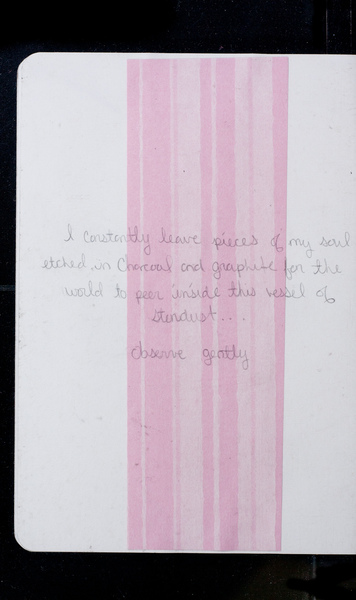 I constantly leave pieces of my soul
etched in charcoal and graphite for the
world to peer inside this vessel of
stardust...
observe gently